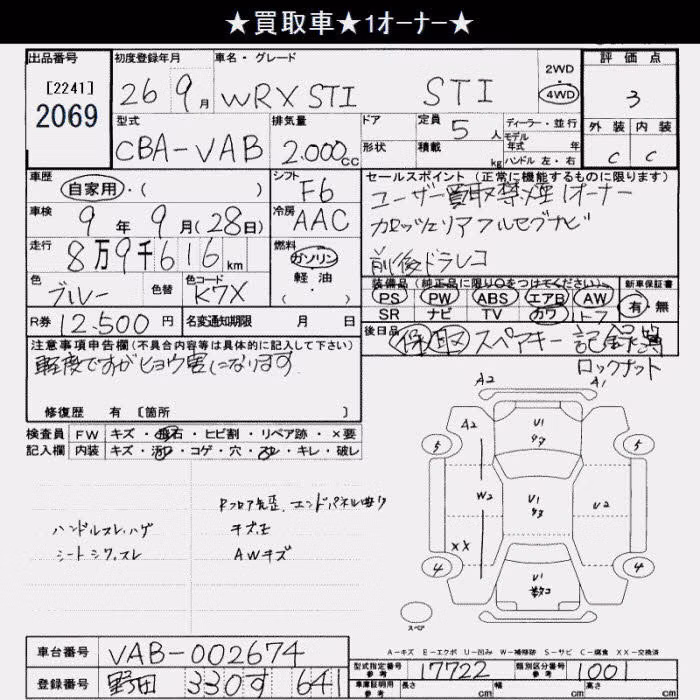 ★買取車★1オーナー★
出品番号 初度登録年月 車名・グレード 評価点
[2241]
2069
26 9月 WRX STI STI 2WD 4WD 3
型式 排気量 ドア 定員 5人 ディーラー・並行 外装 内装
CBA-VAB 2.000cc 形状 積載 kg モデル年式 年 ハンドル 左・右 C C
車歴 シフト セールスポイント(正常に機能するものに限ります)
自家用・( ) F6 ユーザー買取禁煙1オーナー
車検 冷房
9年9月(28日) AAC カロッツェリアフルセグナビ
走行 燃料
8万9千616km ガソリン 軽・油 ( ) 前後ドラレコ
色 色替 色コード 装備品(純正品に限り○をつけてください) 新車保証書
ブルー K7X PS PW ABS エアB AW 有・無
SR ナビ TV カワ
R券 12.500円 名変通知期限 月 日 後日品 保 取 スペアキー 記録簿
ロックナット
注意事項申告欄(不具合内容等は具体的に記入して下さい)
軽度ですがヒョウ害になります
修復歴 有 〔箇所 〕
検査員 FW キズ・飛石・ヒビ割・リペア跡・×要
記入欄 内装 キズ・汚・コゲ・穴・・キレ・破レ
Rフロア先歪、エンドパネル曲り
ハンドルスレ、ハゲ キズ有
シートシワ、スレ AWキズ
A2 A1
A2 U1
5 5
W2 U1 U2
XX
4 4
U1
スペア
A-キズ E-エクボ U-凹み W-補修跡 S-サビ C-腐食 XX-交換済
車台番号 VAB-002674
型式指定番号 参考 17722 類別区分番号 参考 1001
登録番号 野田 330す 641
車庫証明用 参考 長さ cm 幅 cm 高さ cm